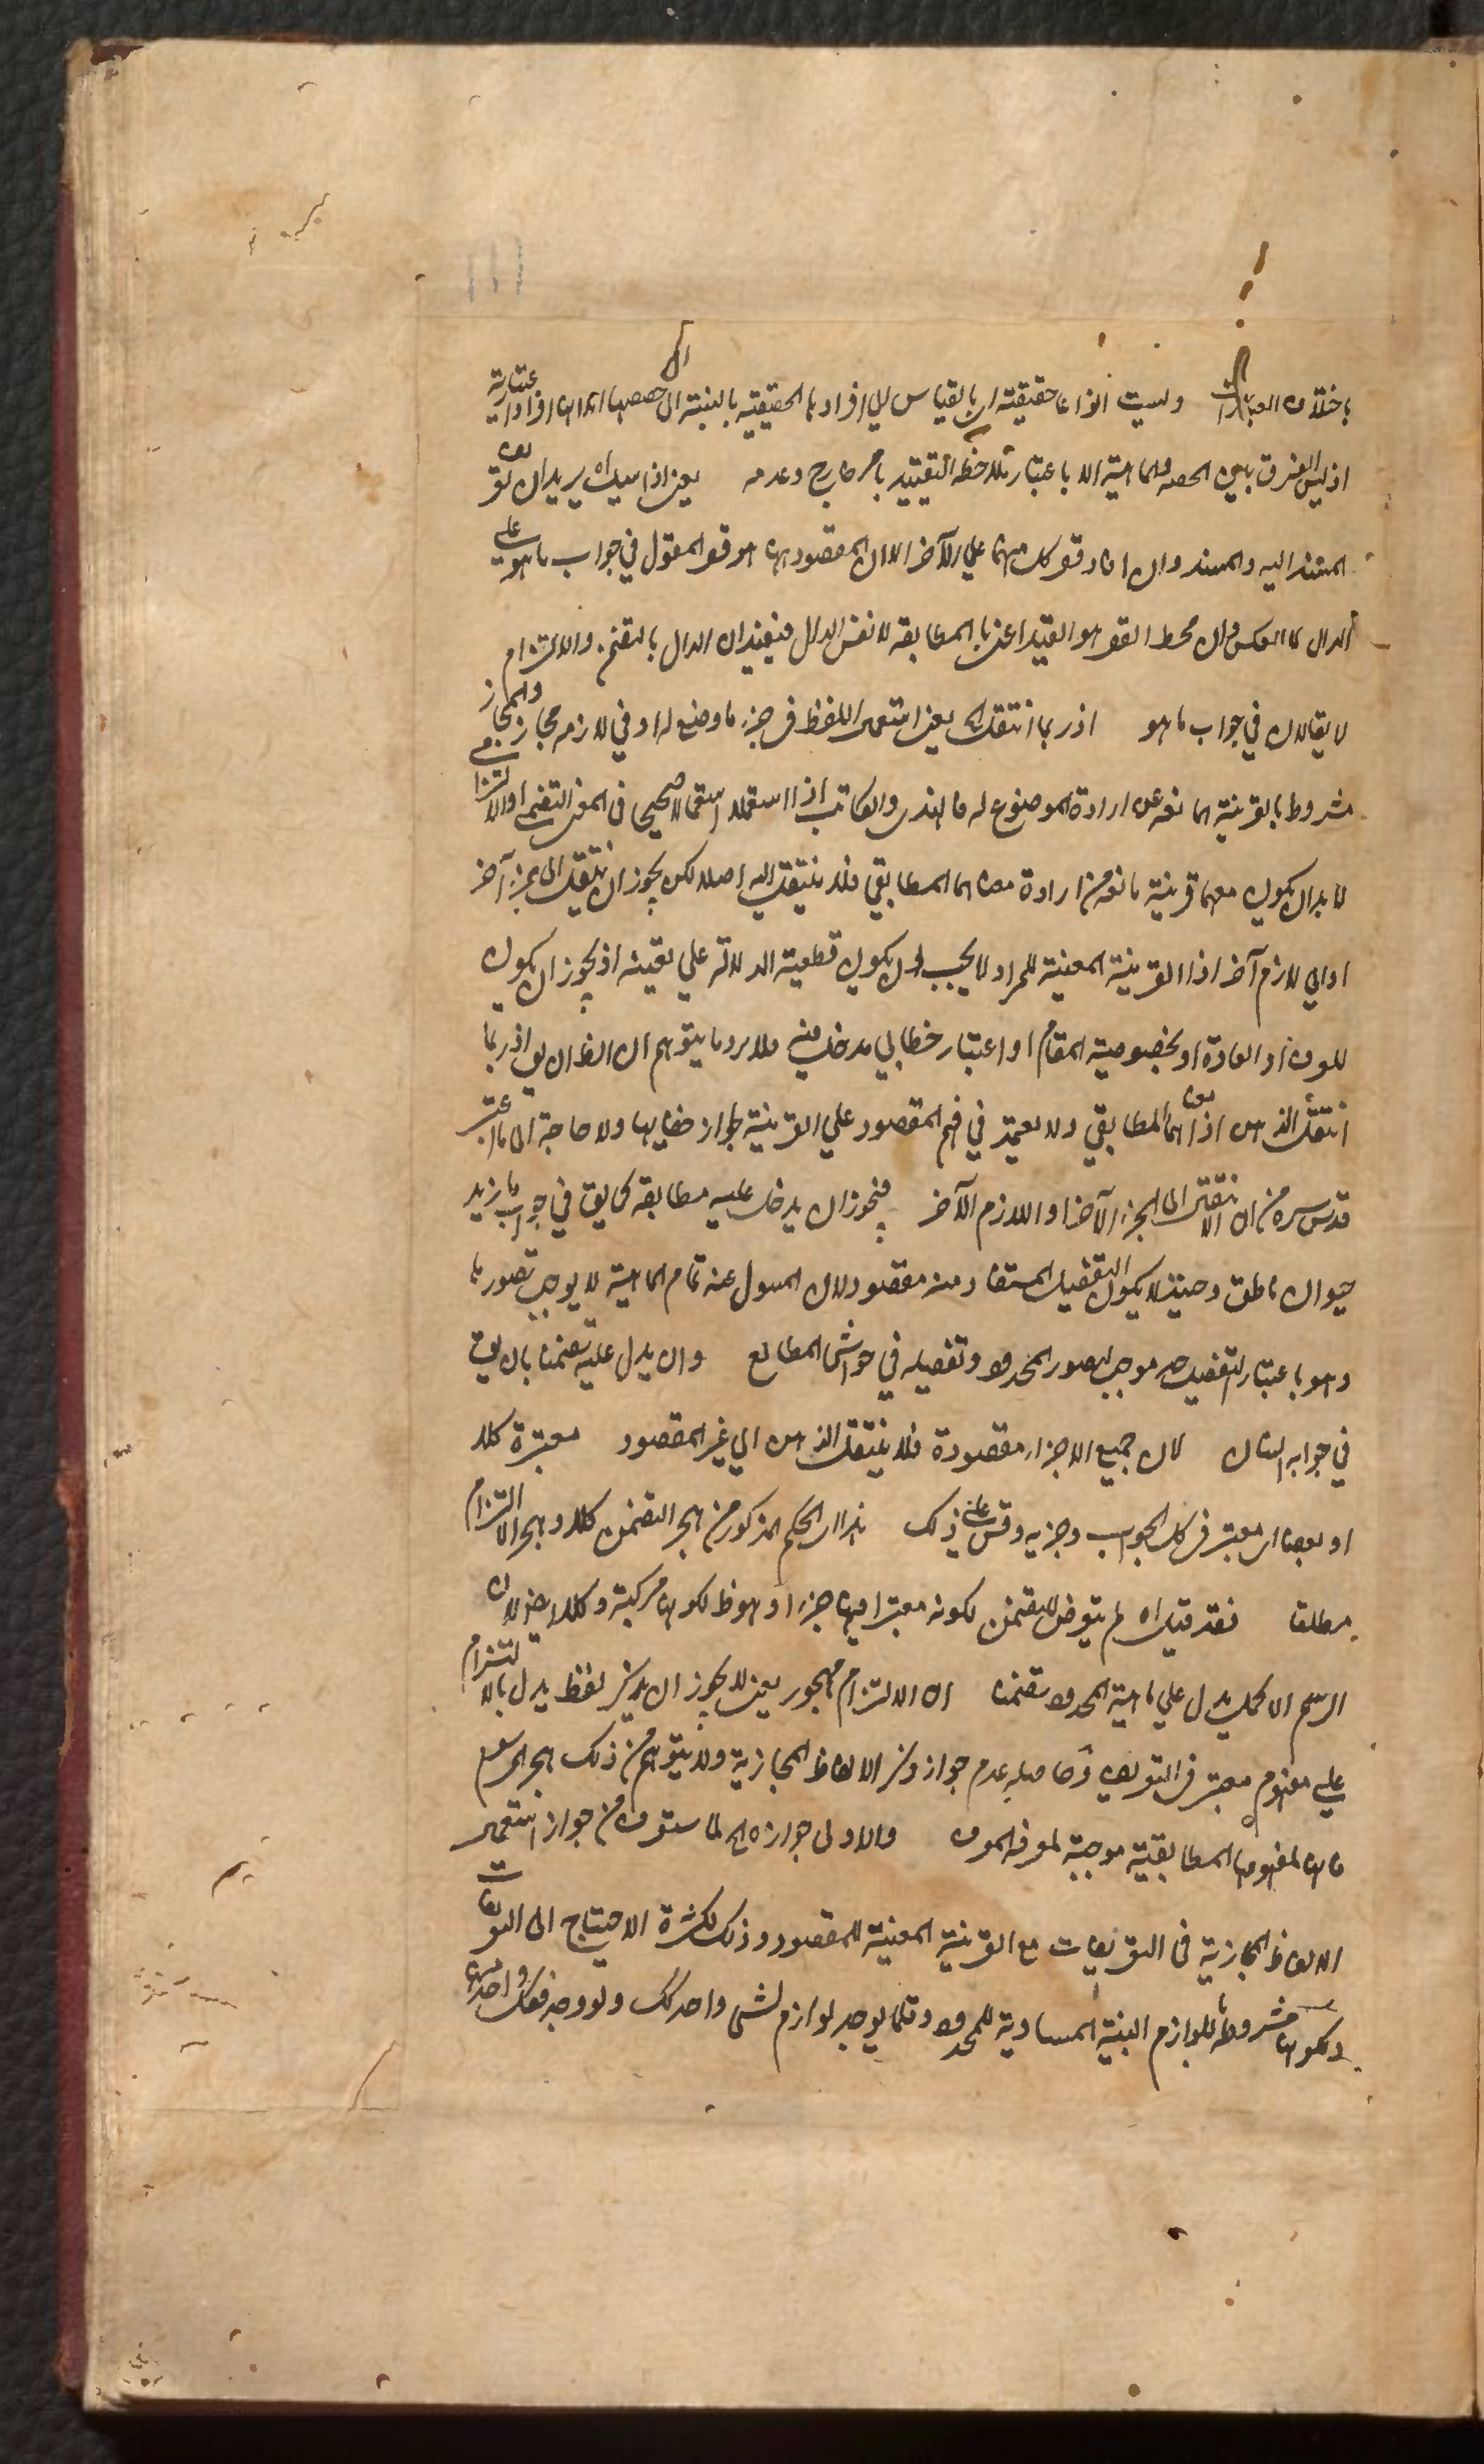 باختلاف العبارات وليست انواعا حقيقته اى بالقياس الى افرادها الحقيقية بالنسبة الى حصصها افرادا اعتبارية
اذ ليس الفرق بين الحصة والماهية الا باعتبار ملاحظة التقييد بامر خارج وعدمه يعنى اذا قيل اه يريد ان تعريف
المسند اليه والمسند وان افاد قصر كل منهما على الآخر الا ان المقصود ههنا هو قصر المقول فى جواب ما هو على
الدال لا العكس وان محط القصر هو القيد اعنى بالمطابقة لا نفس الدال فيفيد ان الدال بالتضمن والالتزام
لا يقالان فى جواب ما هو اذ ربما انتقل الخ يعنى استعمال اللفظ فى جزء ما وضع له او فى لازمه مجاز والمجاز
مشروط بالقرينة المانعة عن ارادة الموضوع له فالهندى والكاتب اذا استعملا استعمالا صحيحا فى المعنى التضمنى او الالتزامى
لا بد ان يكون معهما قرينة مانعة من ارادة معناهما المطابقى فلا ينتقل اليه اصلا لكن يجوز ان ينتقل الى جزء آخر
او الى لازم آخر اذ القرينة المعينة للمراد لا يجب ان يكون قطعية الدلالة على تعيينه اذ يجوز ان يكون
للعرف او العادة او بخصوصية المقام او اعتبار خطابى مدخل فيه فلا يرد ما يتوهم ان الظ ان يق اذ ربما
انتقل الذهن الى معناهما المطابقى ولا يعتمد فى فهم المقصود على القرينة لجواز خفائها ولا حاجة الى ما اعتبر
قدس سره من ان الانتقال الى الجزء الآخر او اللازم الآخر فيجوز ان يدخل عليه مطابقة كما يق فى جواب ما زيد
حيوان ناطق وحينئذ لا يكون التفصيل المستفاد منه مقصودا لان المسؤل عنه تمام الماهية لا يوجب تصورها
وهو باعتبار التفصيل حد موجب لتصور المحدود وتفصيله فى حواشى المطالع وان يدل عليه تضمنا بان يق
فى جوابه انسان لان جميع الاجزاء مقصودة فلا ينتقل الذهن الى غير المقصود معتبرة كلا
او بعضا اى معتبر فى كل الجواب وجزئه وقس على ذلك هذا اى الحكم المذكور من هجر التضمن كلا وهجر الالتزام
مطلقا فقد قيل اه لم يتعرض للتضمن لكونه معتبرا فيها جزءا وهو ظ لكونها مركبة وكلا ايضا لان
الرسم الاكمل يدل على ماهية المحدود تضمنا ان الالتزام مهجور يعنى لا يجوز ان يذكر لفظ يدل بالالتزام
على مفهوم معتبر فى التعريف وحاصله عدم جواز ذكر الالفاظ المجازية ولا يتوهم من ذلك هجر الرسم
فانها لمفهومها المطابقية موجبة لمعرفة المعرف والاولى جوازه الخ لما ستعرف من جواز استعمال
الالفاظ المجازية فى التعريفات مع القرينة المعينة للمقصود وذلك لكثرة الاحتياج الى التعريفات
وكونها مشروطة باللوازم البينة المساوية للمحدود وقلما يوجد لوازم لشئ واحد كك ولو وجد فكل واحد منها